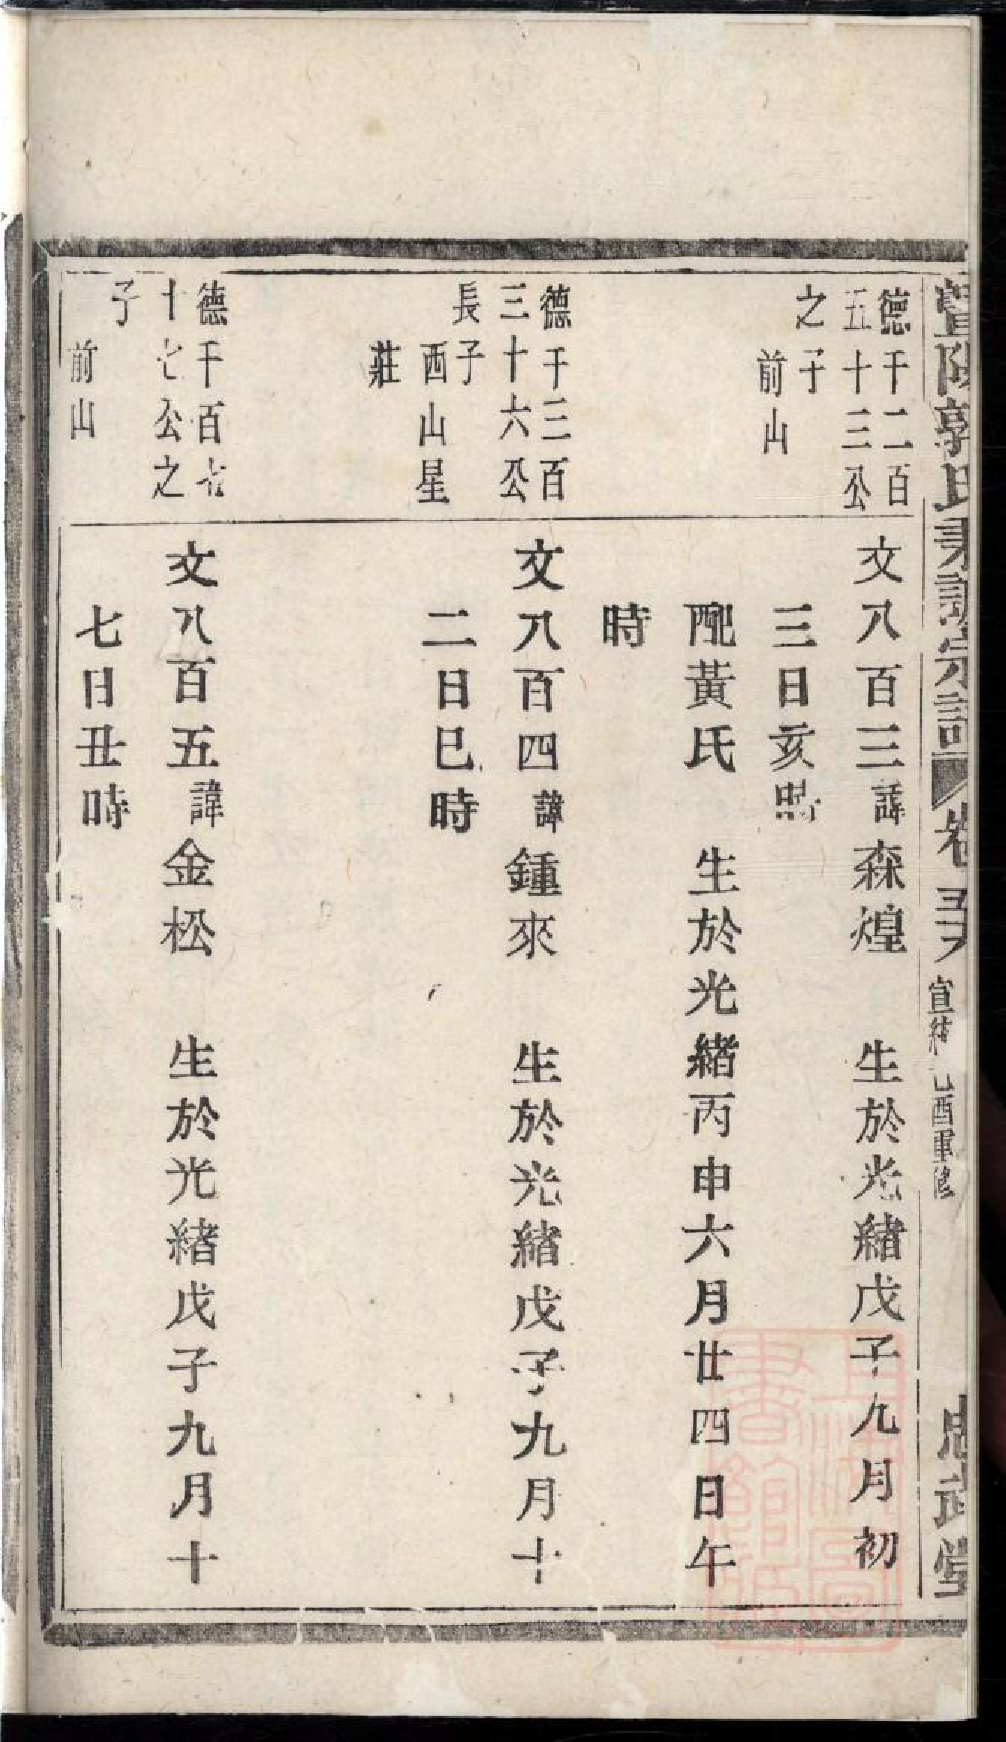 暨陽郭氏宗譜
卷
宣統己酉重修
忠武堂
德千二百
五十三公
之子
前山
文八百三諱森煌 生於光緒戊子九月初
三日亥時
配黃氏 生於光緒丙申六月廿四日午
時
德千三百
三十六公
長子
西山星
莊
文八百四諱鍾來 生於光緒戊子九月十
二日巳時
德千百七
十七公之
子
前山
文八百五諱金松 生於光緒戊子九月十
七日丑時